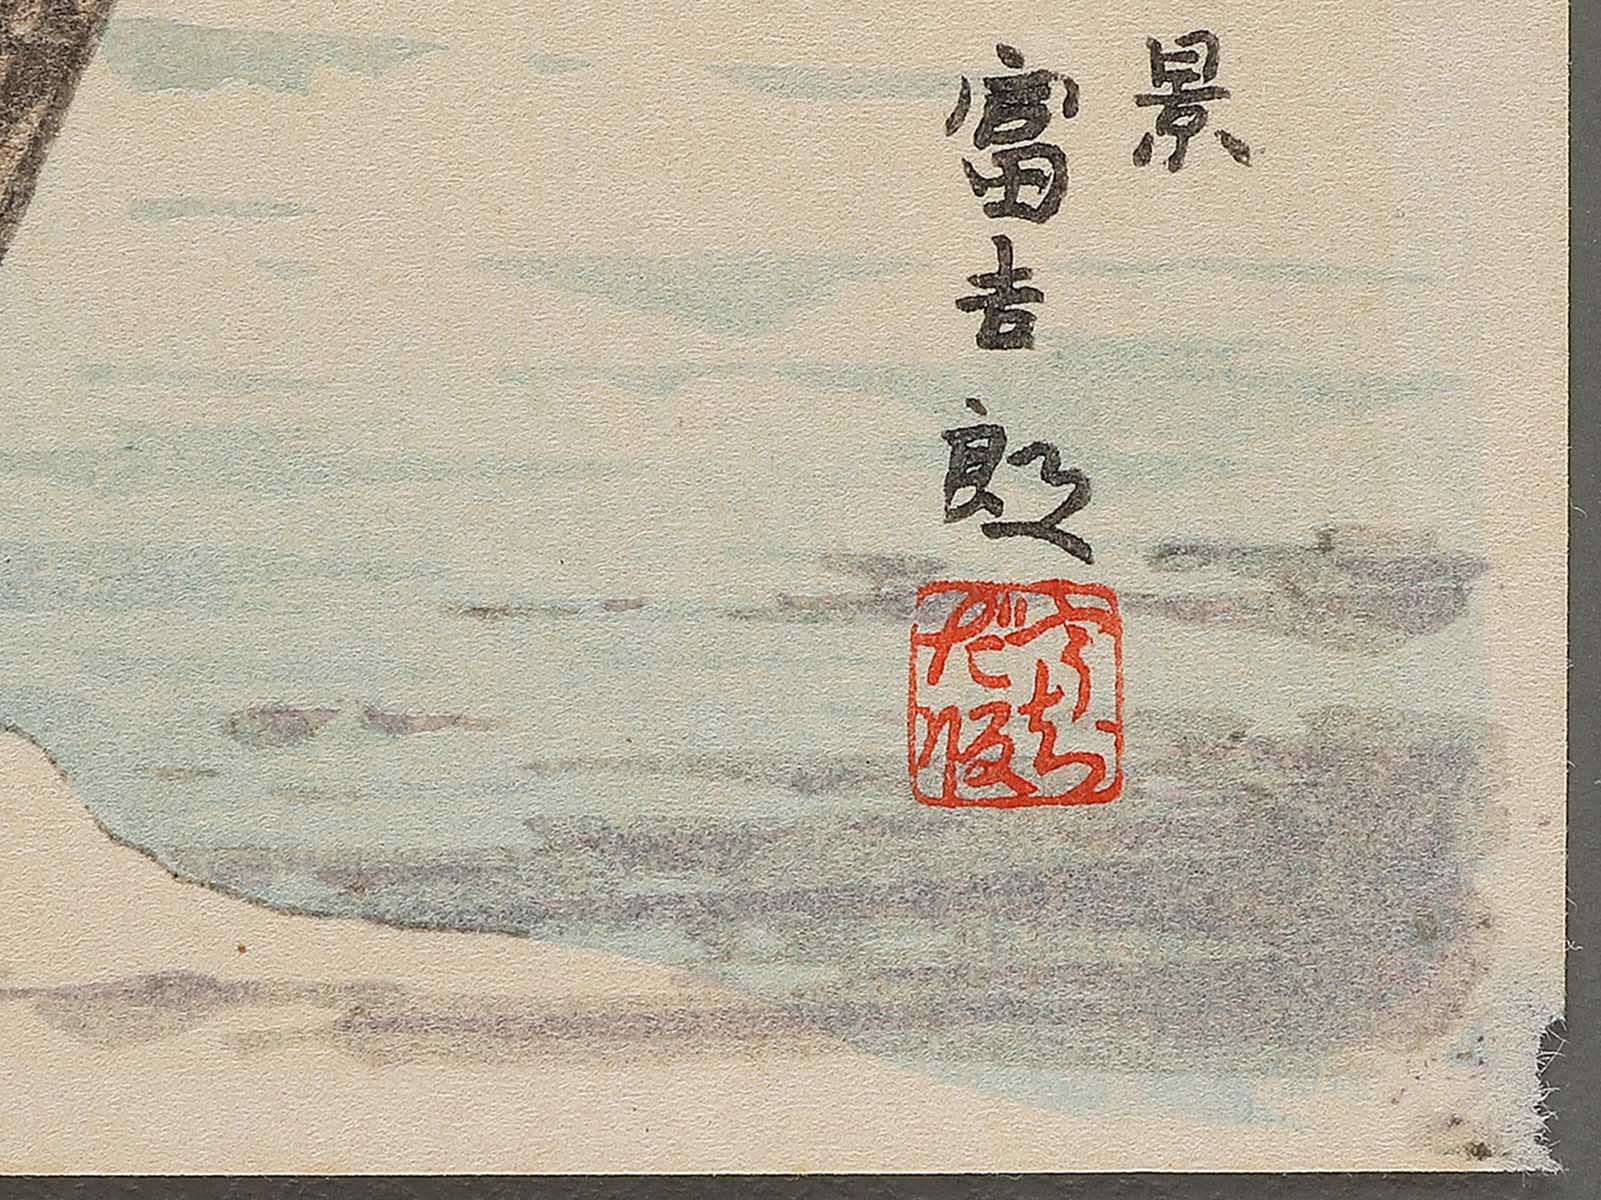 景
富吉郎